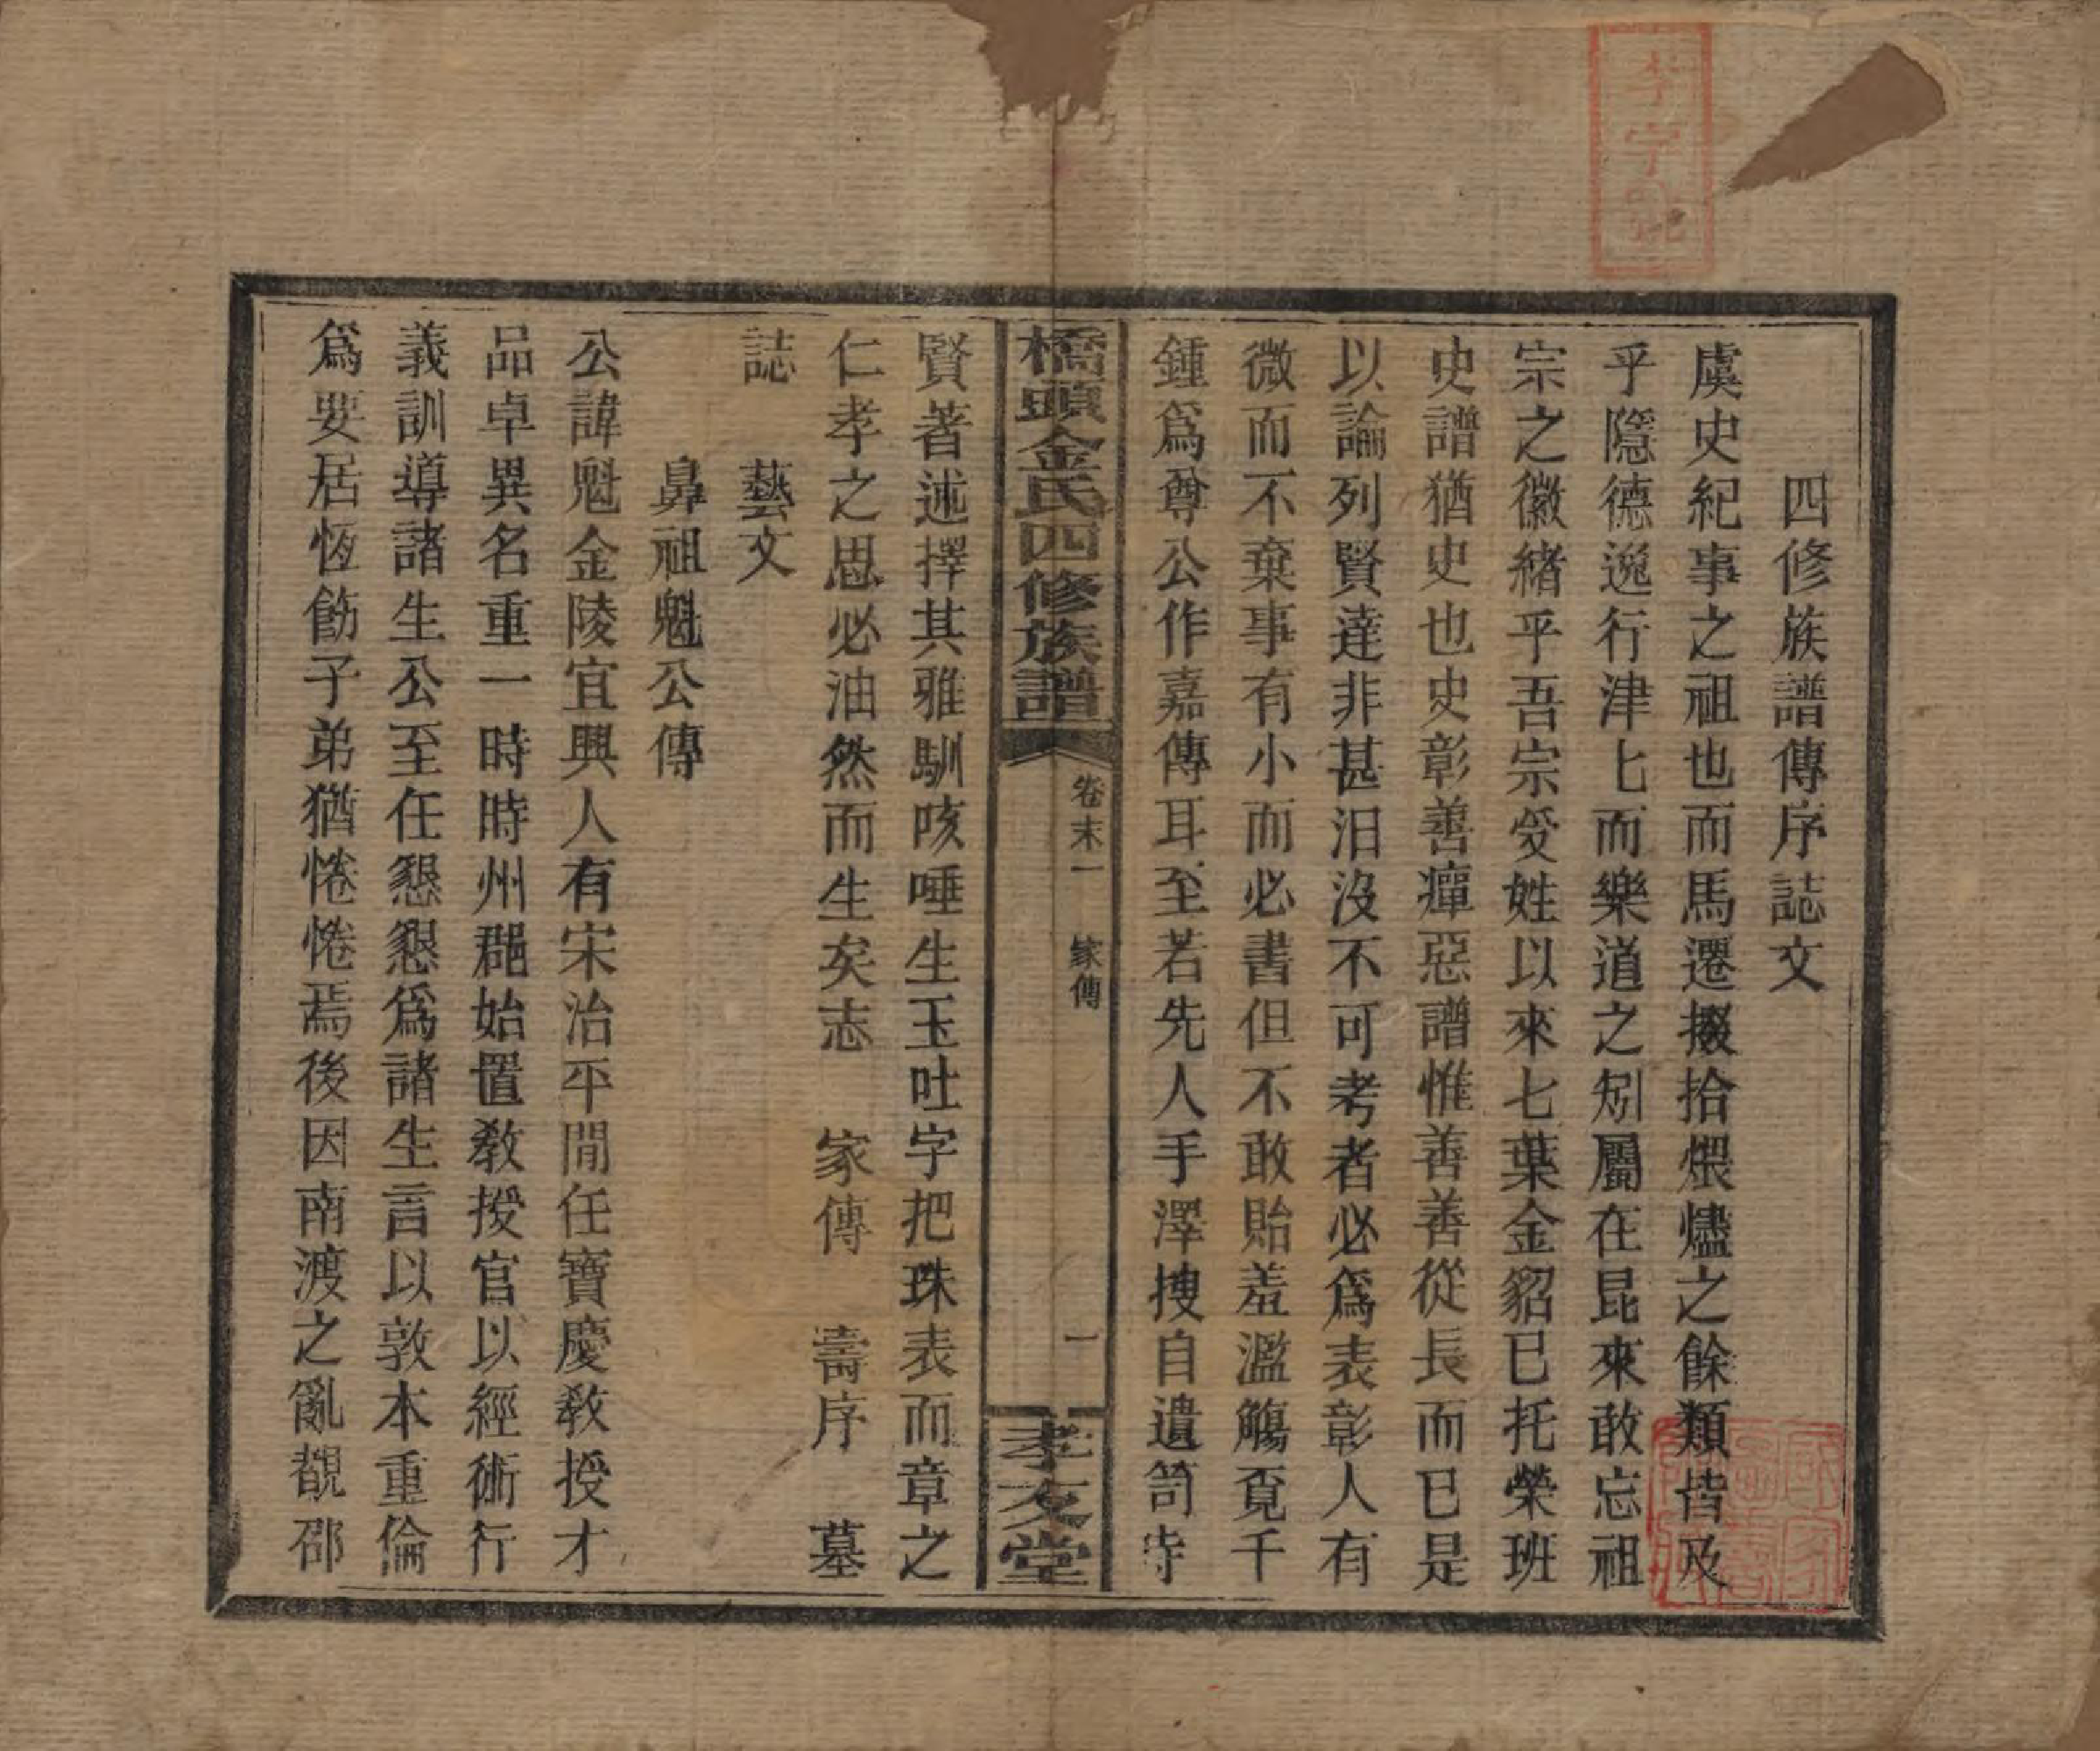 四修族譜傳序誌文
虞史紀事之祖也而馬遷掇拾煨燼之餘類皆及
乎隱德逸行津七而樂道之矧屬在昆來敢忘祖
宗之徽緒乎吾宗受姓以來七葉金貂已托榮班
史譜猶史也史彰善癉惡譜惟善善從長而已是
以論列賢達非甚汨沒不可考者必爲表彰人有
微而不棄事有小而必書但不敢貽羞濫觴覓千
鍾爲尊公作嘉傳耳至若先人手澤搜自遺笥時
橋頭金氏四修族譜
卷末一 家傳
一
孝友堂
賢著述擇其雅馴咳唾生玉吐字把珠表而章之
仁孝之思必油然而生矣志 家傳 壽序 墓
誌 藝文
鼻祖魁公傳
公諱魁金陵宜興人有宋治平閒任寶慶教授才
品卓異名重一時時州郡始置教授官以經術行
義訓導諸生公至任懇懇爲諸生言以敦本重倫
爲要居恆飭子弟猶惓惓焉後因南渡之亂覩邵